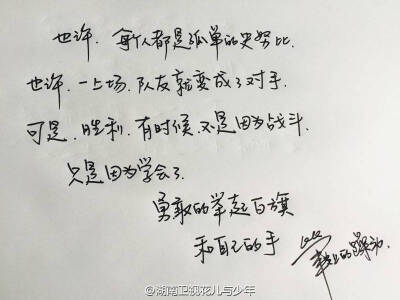 也许. 每个人都是孤单的史努比.
也许. 一上场. 队友就变成了对手.
可是. 胜利. 有时候. 不是因为战斗.
只是因为学会了.
勇敢的举起白旗
和自己的手
@湖南卫视花儿与少年